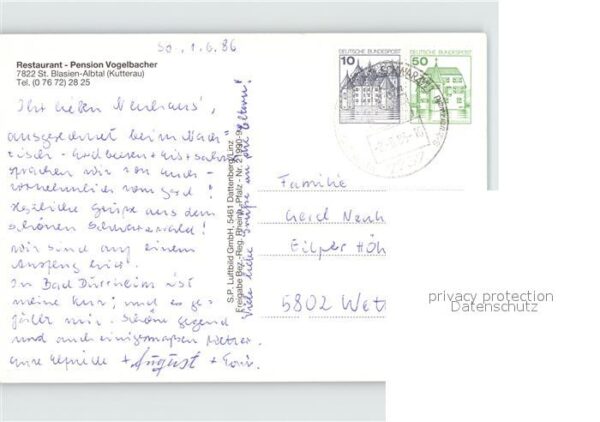 So, 1.6.86
Restaurant - Pension Vogelbacher
7822 St. Blasien-Albtal (Kutterau)
Tel. (0 76 72) 28 25
Ihr lieben Neuhaus',
ausgerechnet beim Nach-
tisch - Erdbeeren + Eis + Sahne
sprachen wir von Euch -
vornehmlich vom Gerd!
Herzliche Grüße aus dem
schönen Schwarzwald!
Wir sind auf einem
Ausflug hier.
In Bad Dürrheim ist
meine Kur; und es ge-
fällt mir. Schöne Gegend
und auch einigermaßen Wetter.
Eure + August +
Viele liebe Grüße an die Eltern!
S.P. Luftbild GmbH, 5461 Dattenberg/Linz
Freigabe Bez.-Reg. Rheinh.-Pfalz - Nr.
DEUTSCHE BUNDESPOST
10
DEUTSCHE BUNDESPOST
50
Familie
Gerd Neuh
Eilper Höh
5802 Wett
privacy protection
Datenschutz